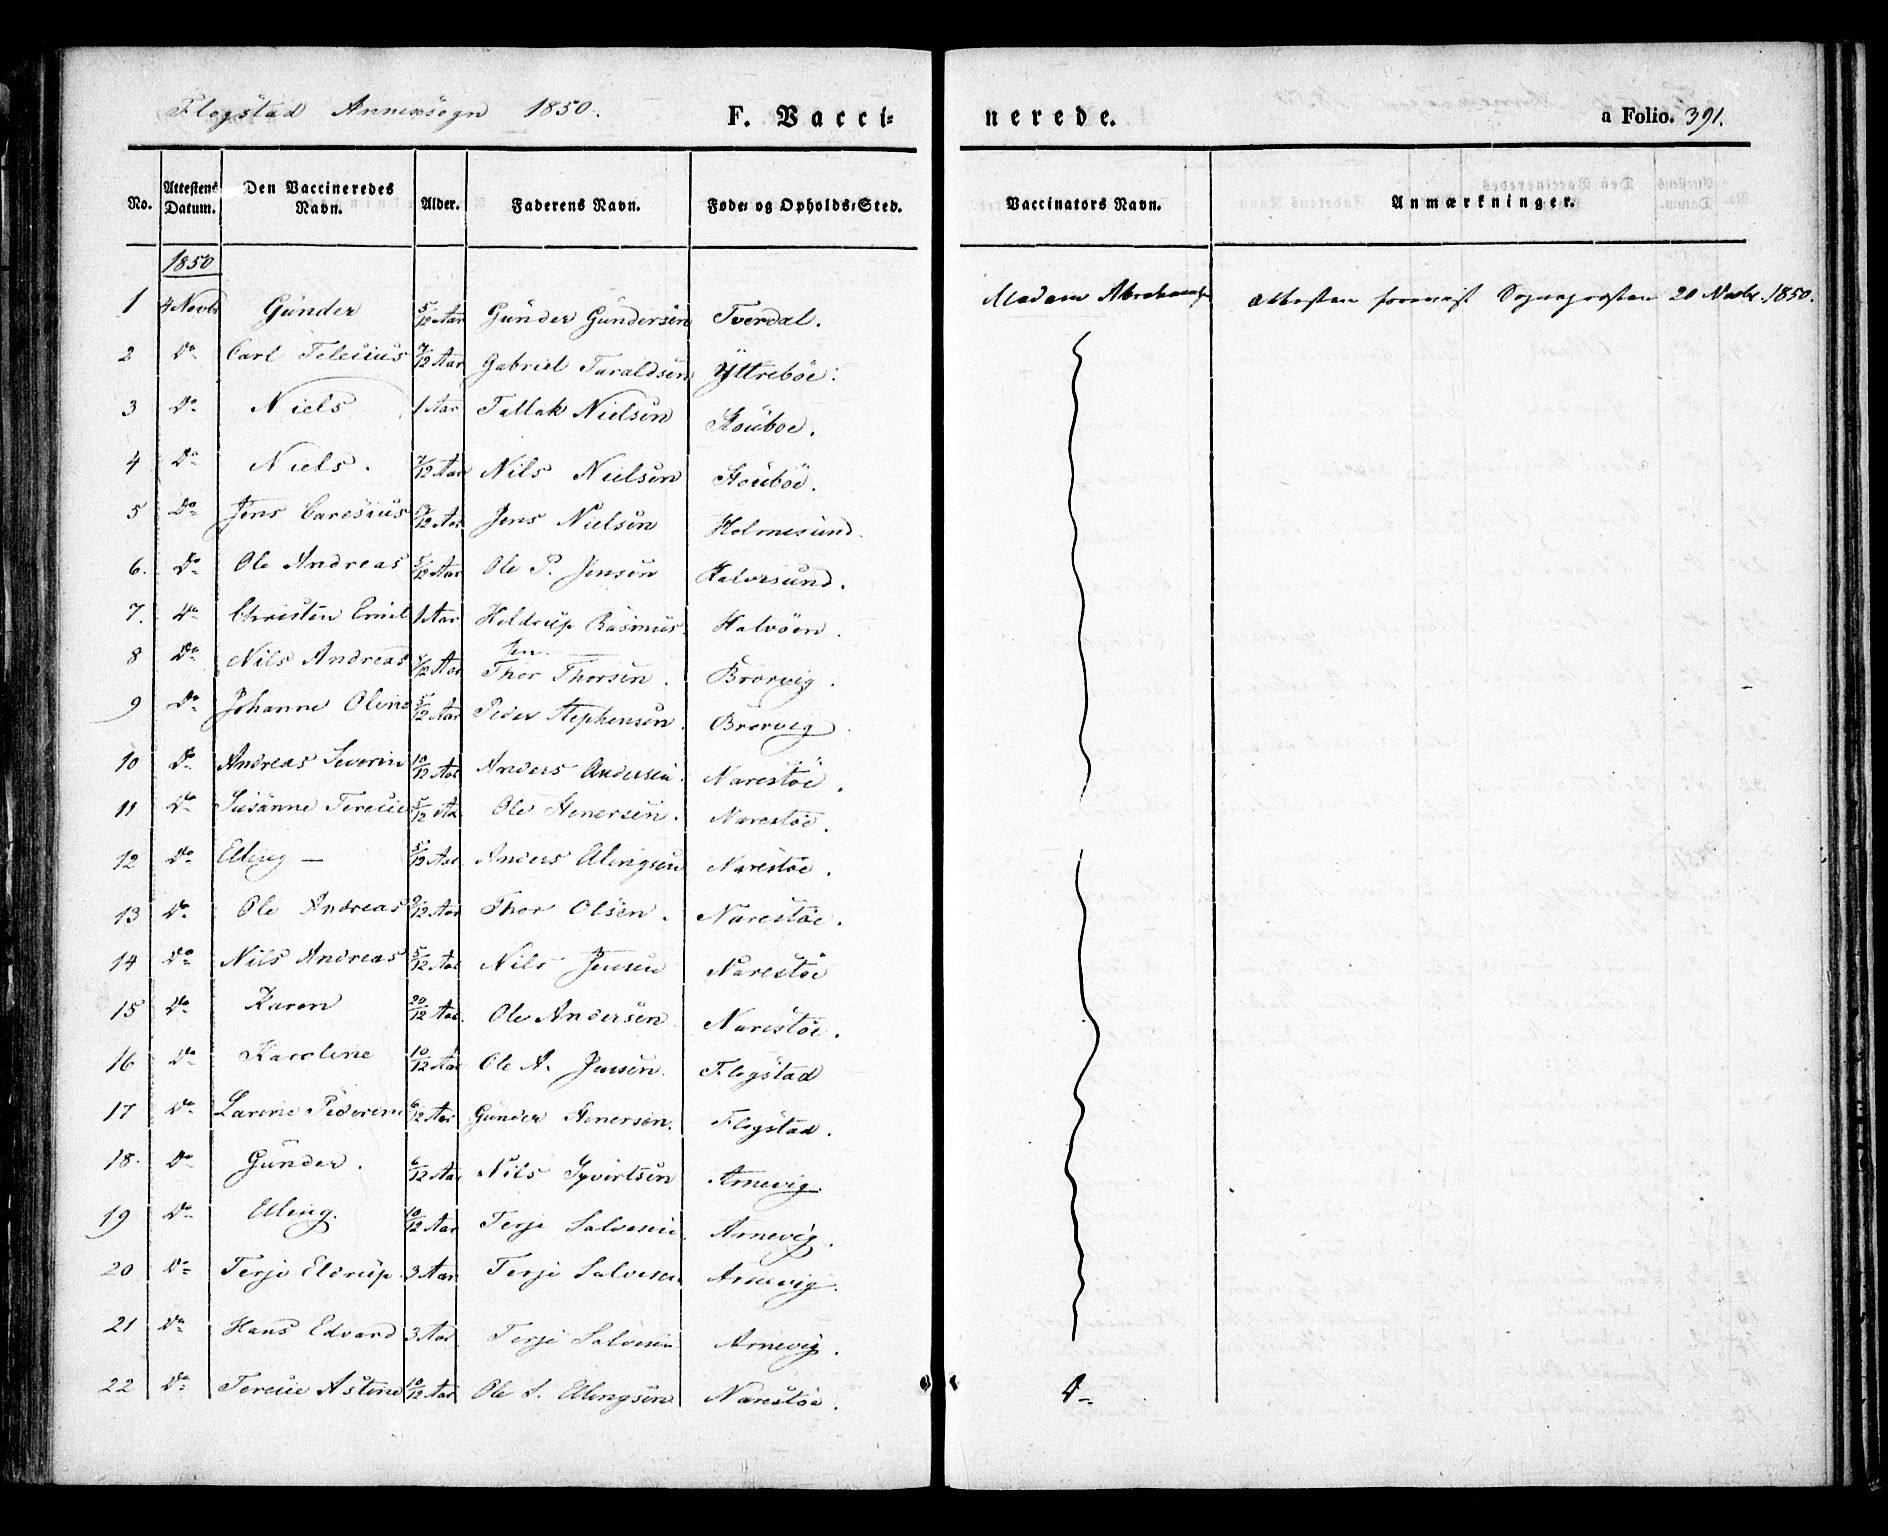 Flogstad Annexsogn 1850.
F. Vaccinerede.
a Folio. 391.
No. Attestens Datum. Den Vaccineredes Navn. Alder. Faderens Navn. Føde- og Opholds-Sted. Vaccinators Navn. Anmærkninger.
1850
1 4 Novbr Gunder 5/12 Aar Gunder Gundersen Tverdal. Madam Attesten foreviist Sognepræsten 20 Novbr. 1850.
2 Do Carl Telecius 7/12 Aar Gabriel Taraldsen Yttreböe.
3 Do Niels 1 Aar Tallak Nielsen Stöuboe.
4 Do Niels. 7/12 Aar Nils Nielsen Stöuböe.
5 Do Jens 9/12 Aar Jens Nielsen Holmesund.
6. Do Ole Andreas 5/12 Aar Ole P. Jensen Kalvesund.
7. Do Christen Emil 1 Aar Heldrup Rasmussen. Kalvöen.
8 Do Nils Andreas Aar Thor Thorsen. Brorvig.
9 Do Johanne Oline 5/12 Aar Peder Stephensen. Brorvig.
10 Do Andreas Severin 10/12 Aar Anders Andersen. Narestöe.
11 Do Susanne Teresie 5/12 Aar Ole Henersen. Narestöe.
12 Do Elling — 5/12 Aar Anders Ellingsen Narestöe.
13 Do Ole Andreas 9/12 Aar Thor Olsen. Narestöe.
14 Do Nils Andreas 5/12 Aar Nils Jensen Narestöe
15 Do Karen 20/12 Aar. Ole Andersen Narestöe.
16 Do Karoline 10/12 Aar Ole A. Jensen. Flogstad
17 Do Larine Pederine 6/12 Aar Gunder Henersen. Flogstad.
18. Do Gunder. 6/12 Aar Nils Syvertsen Arnevig.
19 Do Elling. 10/12 Aar Terje Salvesen. Arnevig.
20 Do Terje Eldrup 3 Aar Terje Salvesen Arnevig.
21 Do Hans Edvard 3 Aar Terje Salvesen Arnevig.
22 Do Teresie Astine 10/12 Aar Ole S. Ellingsen Narestöe. Do